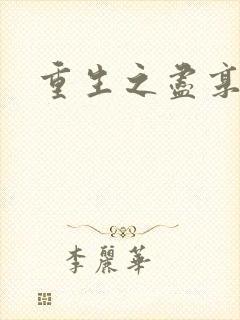 重生之盡
李麗華